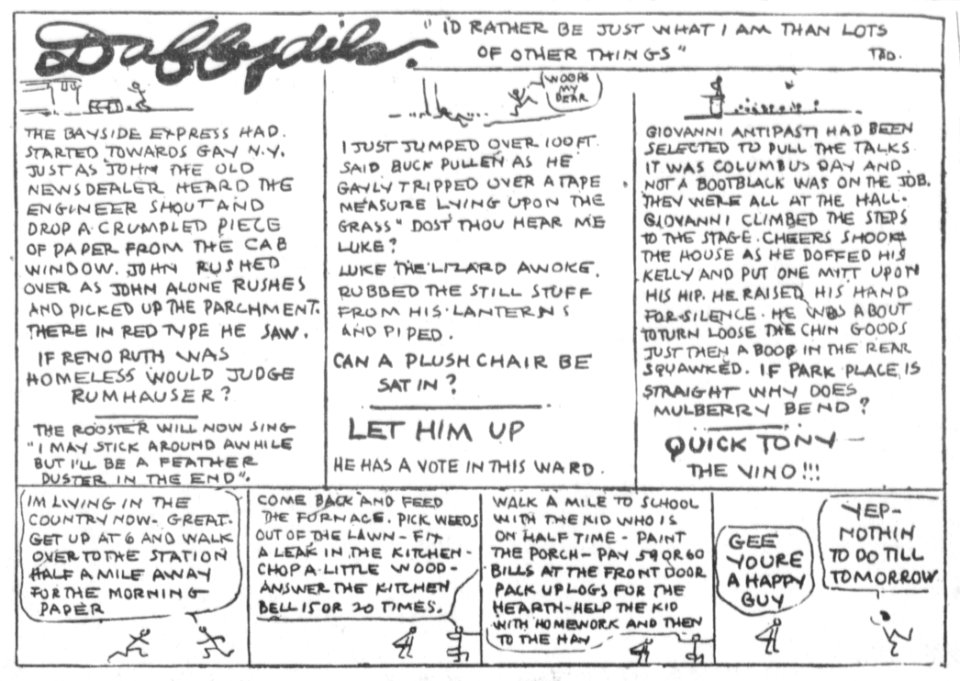 Daffydils.
"I'D RATHER BE JUST WHAT I AM THAN LOTS
OF OTHER THINGS"
TAD.
THE BAYSIDE EXPRESS HAD.
STARTED TOWARDS GAY N.Y.
JUST AS JOHN THE OLD
NEWSDEALER HEARD THE
ENGINEER SHOUT AND
DROP A CRUMPLED PIECE
OF PAPER FROM THE CAB
WINDOW. JOHN RUSHED
OVER AS JOHN ALONE RUSHES
AND PICKED UP THE PARCHMENT.
THERE IN RED TYPE HE SAW.
IF RENO RUTH WAS
HOMELESS WOULD JUDGE
RUMHAUSER?
THE ROOSTER WILL NOW SING
"I MAY STICK AROUND AWHILE
BUT I'LL BE A FEATHER
DUSTER IN THE END".
WOOPS
MY
DEAR
I JUST JUMPED OVER 100 FT.
SAID BUCK PULLEN AS HE
GAYLY TRIPPED OVER A TAPE
MEASURE LYING UPON THE
GRASS" DOST THOU HEAR ME
LUKE?
LUKE THE LIZARD AWOKE,
RUBBED THE STILL STUFF
FROM HIS LANTERNS
AND PIPED.
CAN A PLUSH CHAIR BE
SAT IN?
LET HIM UP
HE HAS A VOTE IN THIS WARD.
GIOVANNI ANTIPASTI HAD BEEN
SELECTED TO PULL THE TALKS.
IT WAS COLUMBUS DAY AND
NOT A BOOTBLACK WAS ON THE JOB.
THEY WERE ALL AT THE HALL.
GIOVANNI CLIMBED THE STEPS
TO THE STAGE. CHEERS SHOOK
THE HOUSE AS HE DOFFED HIS
KELLY AND PUT ONE MITT UPON
HIS HIP. HE RAISED HIS HAND
FOR SILENCE. HE WAS ABOUT
TO TURN LOOSE THE CHIN GOODS
JUST THEN A BOOB IN THE REAR
SQUAWKED. IF PARK PLACE IS
STRAIGHT WHY DOES
MULBERRY BEND?
QUICK TONY—
THE VINO!!!
IM LIVING IN THE
COUNTRY NOW- GREAT-
GET UP AT 6 AND WALK
OVER TO THE STATION
HALF A MILE AWAY
FOR THE MORNING
PAPER
COME BACK AND FEED
THE FURNACE. PICK WEEDS
OUT OF THE LAWN - FIX
A LEAK IN THE KITCHEN-
CHOP A LITTLE WOOD-
ANSWER THE KITCHEN
BELL 15 OR 20 TIMES.
WALK A MILE TO SCHOOL
WITH THE KID WHO IS
ON HALF TIME - PAINT
THE PORCH - PAY 59 OR 60
BILLS AT THE FRONT DOOR
PACK UP LOGS FOR THE
HEARTH-HELP THE KID
WITH HOMEWORK AND THEN
TO THE HAY
GEE
YOURE
A HAPPY
GUY
YEP-
NOTHIN
TO DO TILL
TOMORROW